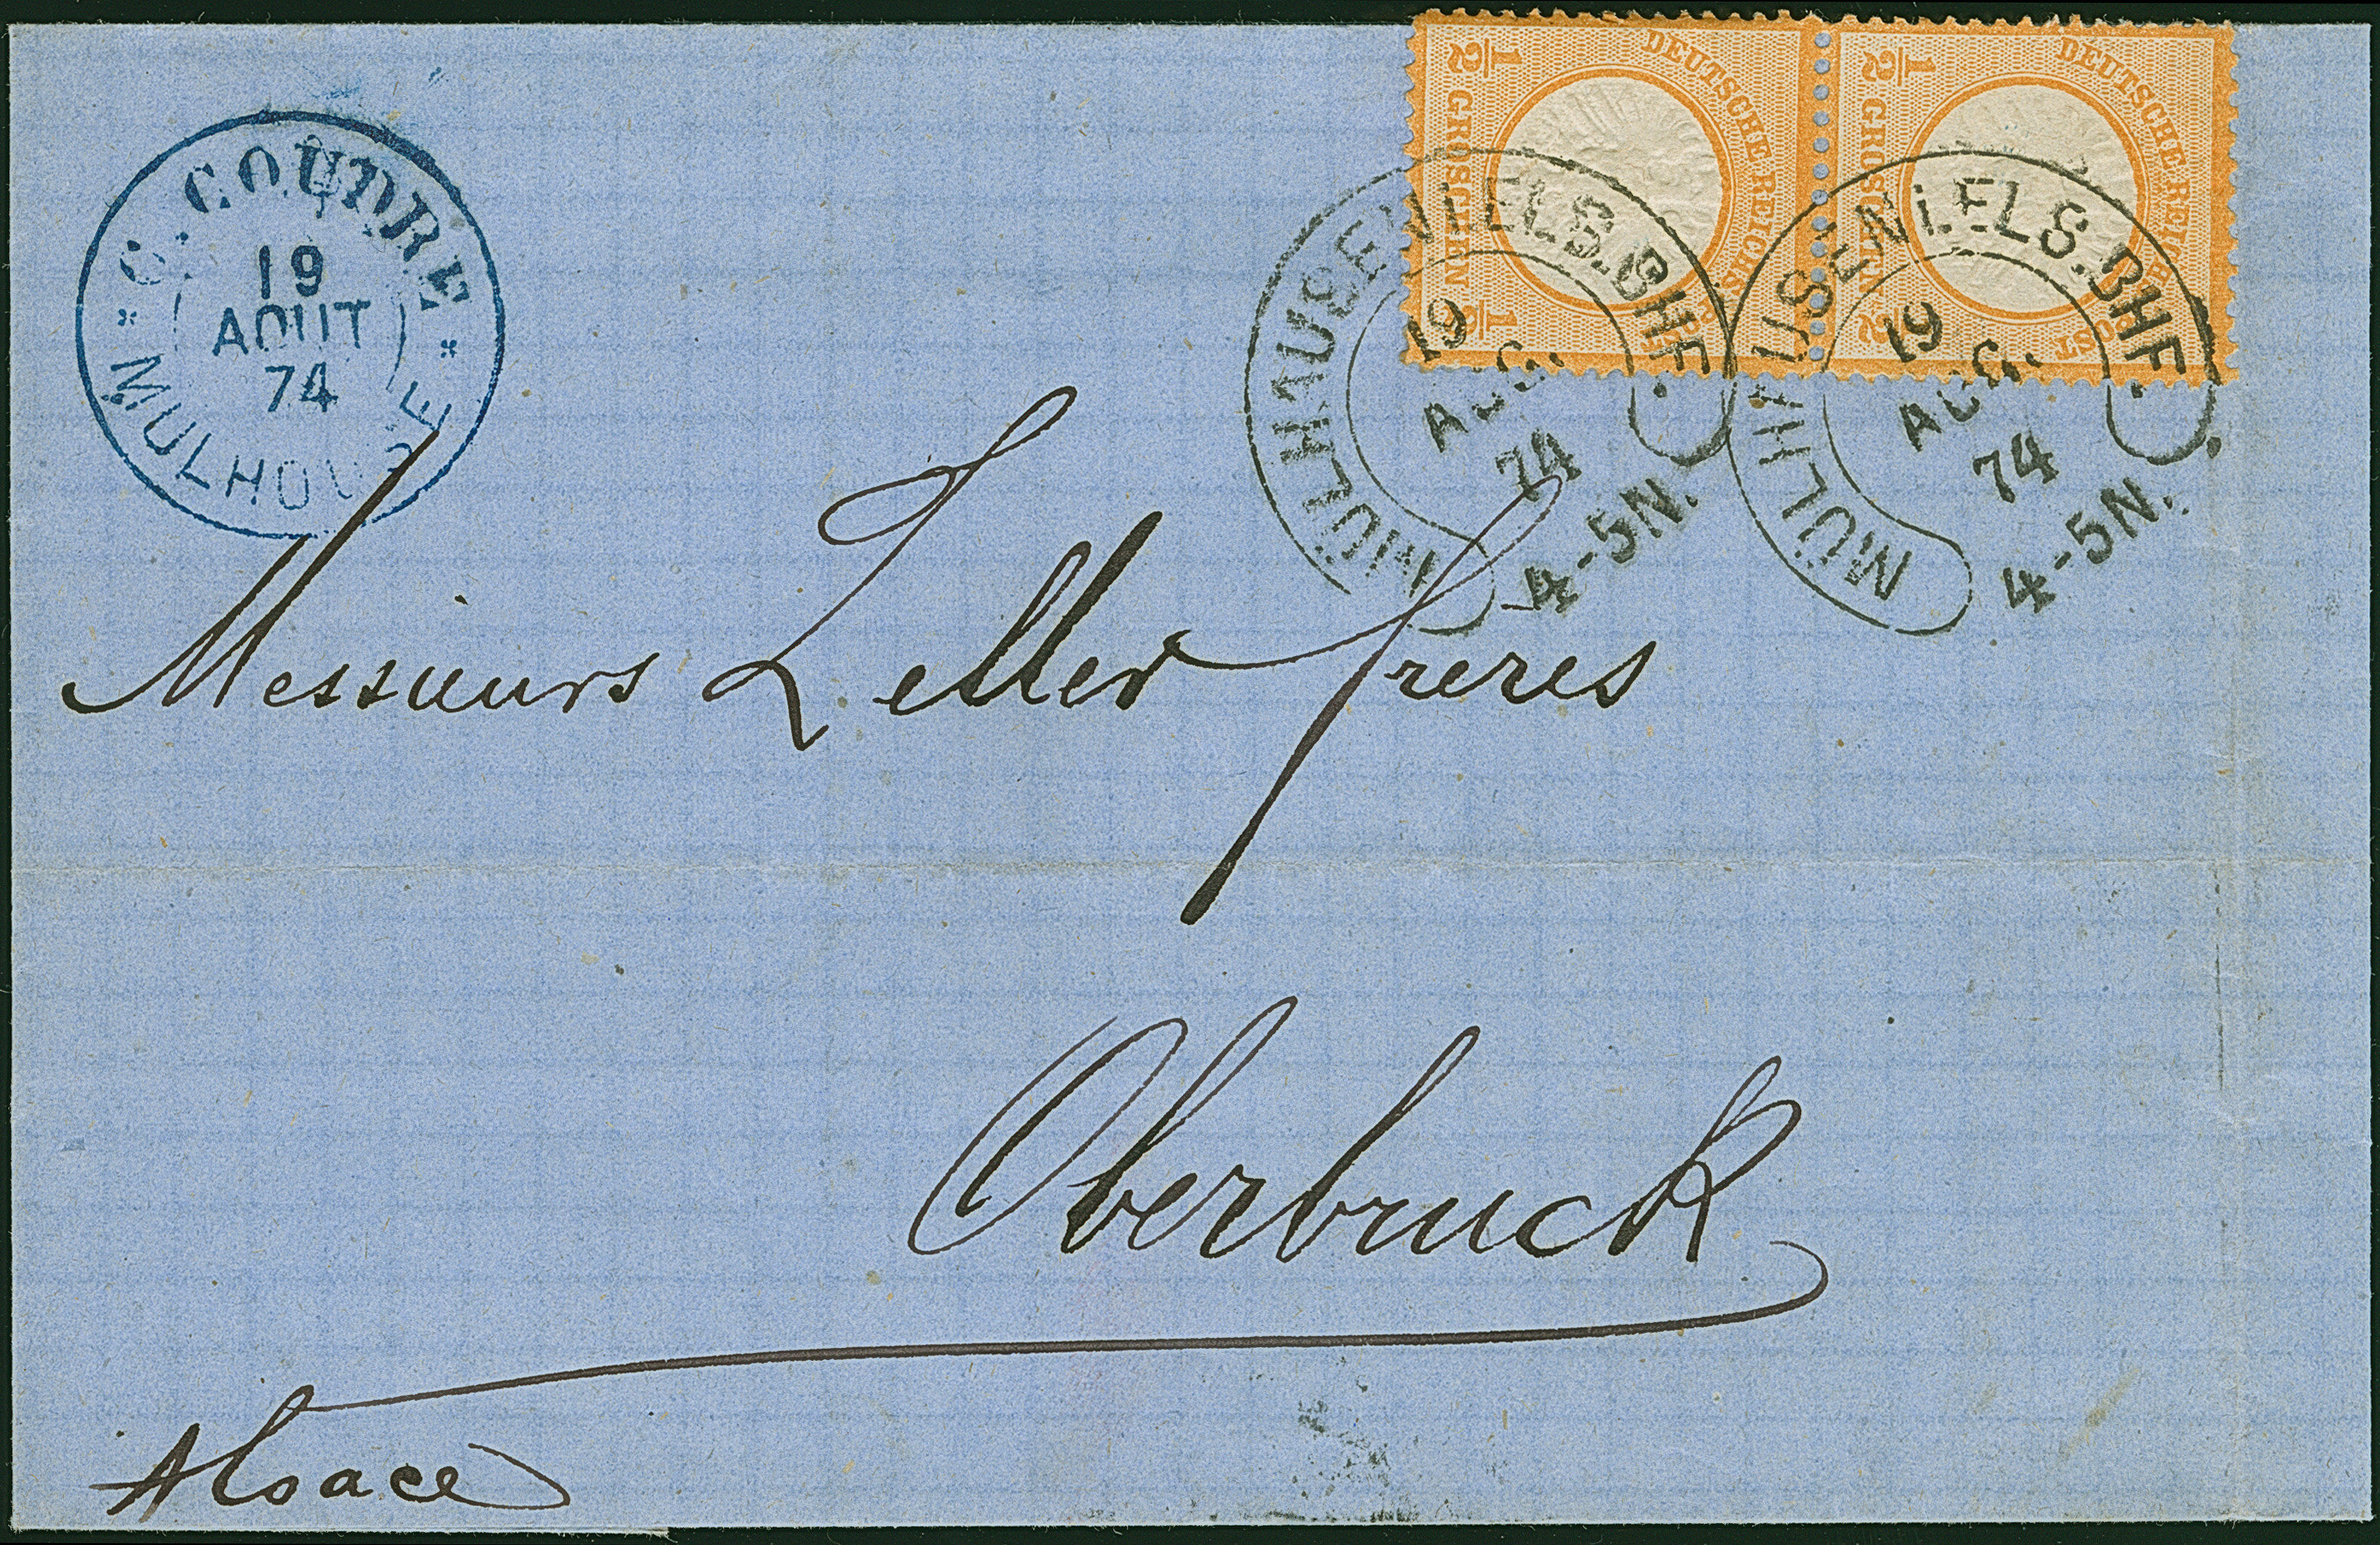 C. COUDRE
19
AOUT
74
MULHOUSE
1/2 GROSCHEN 1/2
DEUTSCHE REICHS POST
1/2 GROSCHEN 1/2
DEUTSCHE REICHS POST
MÜLHAUSEN i. ELS. BHF.
19
AUG.
74
4-5N.
MÜLHAUSEN i. ELS. BHF.
19
AUG.
74
4-5N.
Messieurs Zeller freres
Oberbruck
Alsace